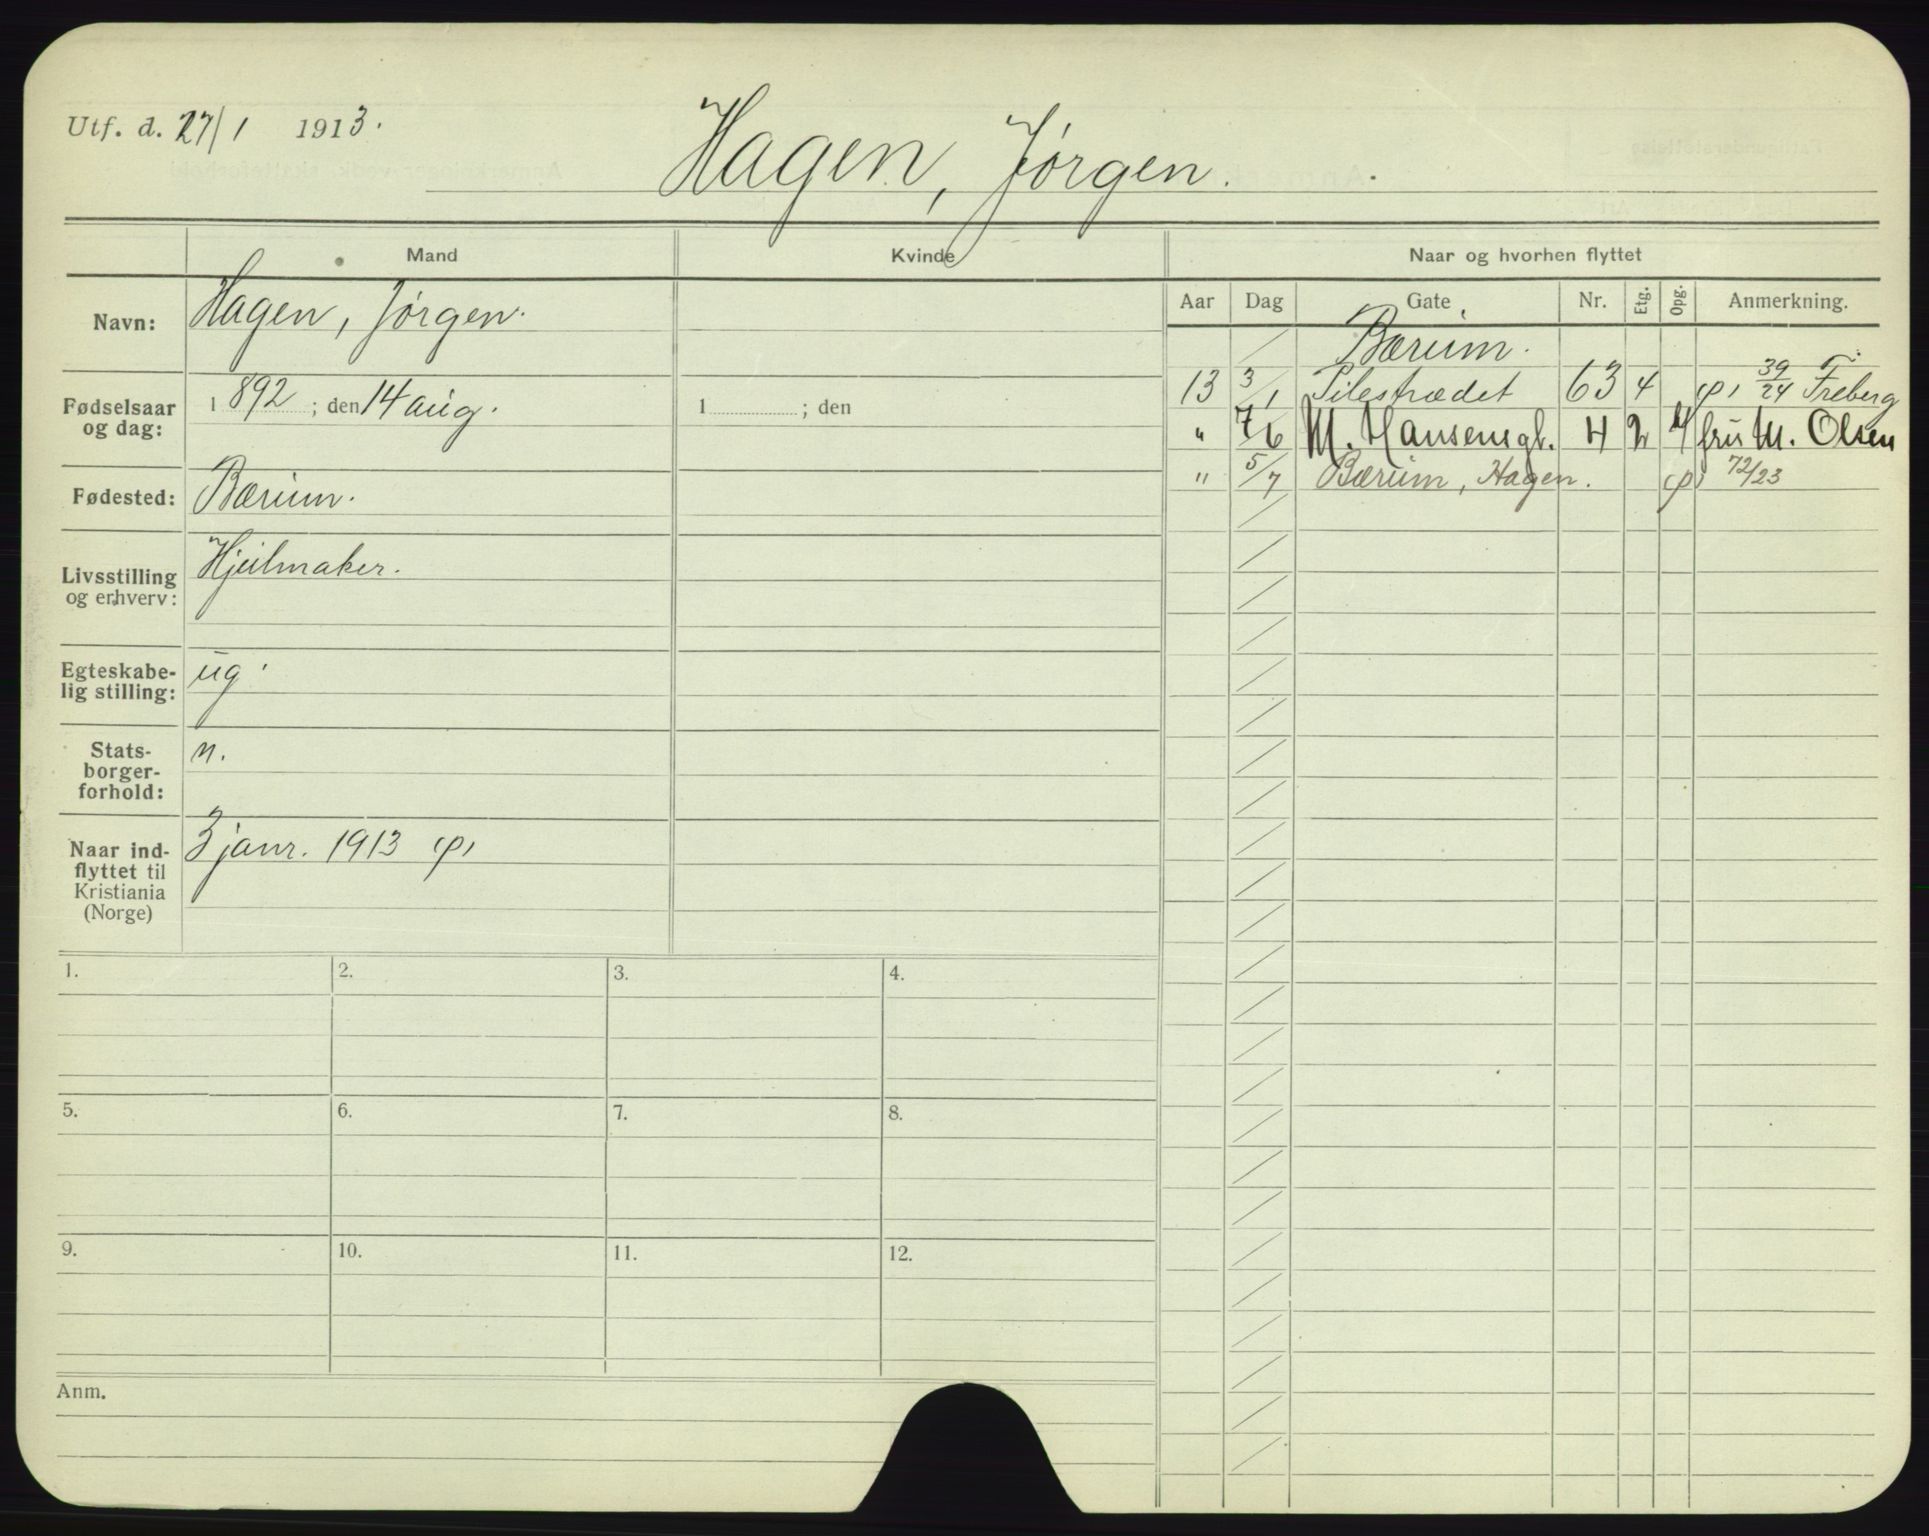 Utf. d. 27/1 1913.
Hagen, Jørgen.
Mand
Kvinde
Naar og hvorhen flyttet
Navn:
Hagen, Jørgen.
Aar Dag Gate Nr. Etg. Opg. Anmerkning.
Bærum.
13 3/1 Pilestrædet 63 4 39/24 Freberg
" 7/6 M. Hansensgt. 4 2 4 fru M. Olsen
" 5/7 Bærum, Hagen. 72/23
Fødselsaar og dag:
1892; den 14 aug.
1 ; den
Fødested:
Bærum.
Livsstilling og erhverv:
Hjulmaker.
Egteskabe-
lig stilling:
ug.
Stats-
borger-
forhold:
n.
Naar ind-
flyttet til
Kristiania
(Norge)
3 janr. 1913
1. 2. 3. 4.
5. 6. 7. 8.
9. 10. 11. 12.
Anm.